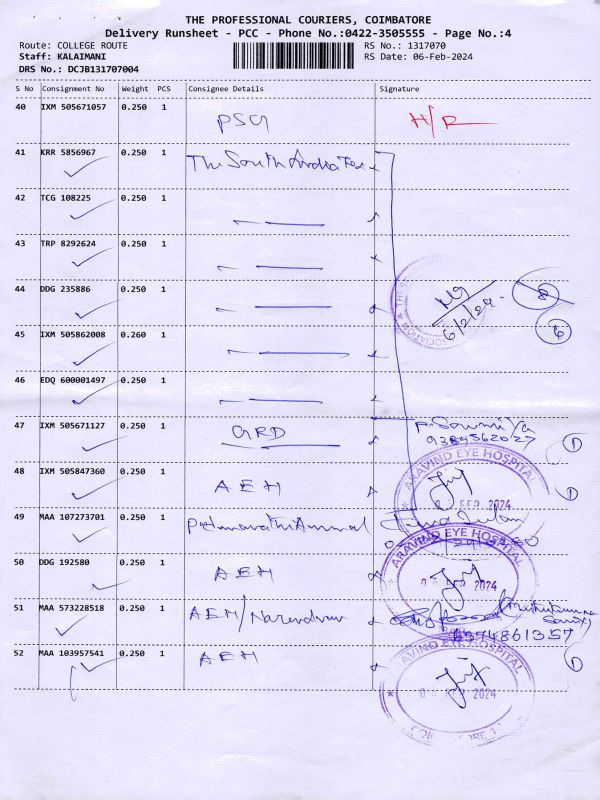 THE PROFESSIONAL COURIERS, COIMBATORE
Delivery Runsheet - PCC - Phone No.:0422-3505555 - Page No.:4
Route: COLLEGE ROUTE RS No.: 1317070
Staff: KALAIMANI RS Date: 06-Feb-2024
DRS No.: DCJB131707004
S No Consignment No Weight PCS Consignee Details Signature
40 IXM 505671057 0.250 1 PSG H/R
41 KRR 5856967 0.250 1 The South India Tex
42 TCG 108225 0.250 1
43 TRP 8292624 0.250 1
44 DDG 235886 0.250 1
6/2/24
8
6
45 IXM 505862008 0.260 1
46 EDQ 600001497 0.250 1
47 IXM 505671127 0.250 1 GRD P. Soumiya
9384562027
1
48 IXM 505847360 0.250 1 AEH
ARAVIND EYE HOSPITAL
FEB 2024
1
49 MAA 107273701 0.250 1 Padmavathi Ammal
ARAVIND EYE HOSPITAL
50 DDG 192580 0.250 1 AEH
2024
51 MAA 573228518 0.250 1 AEH/Narendran
6374861357
52 MAA 103957541 0.250 1 AEH
1
ARAVIND EYE HOSPITAL
06 FEB 2024